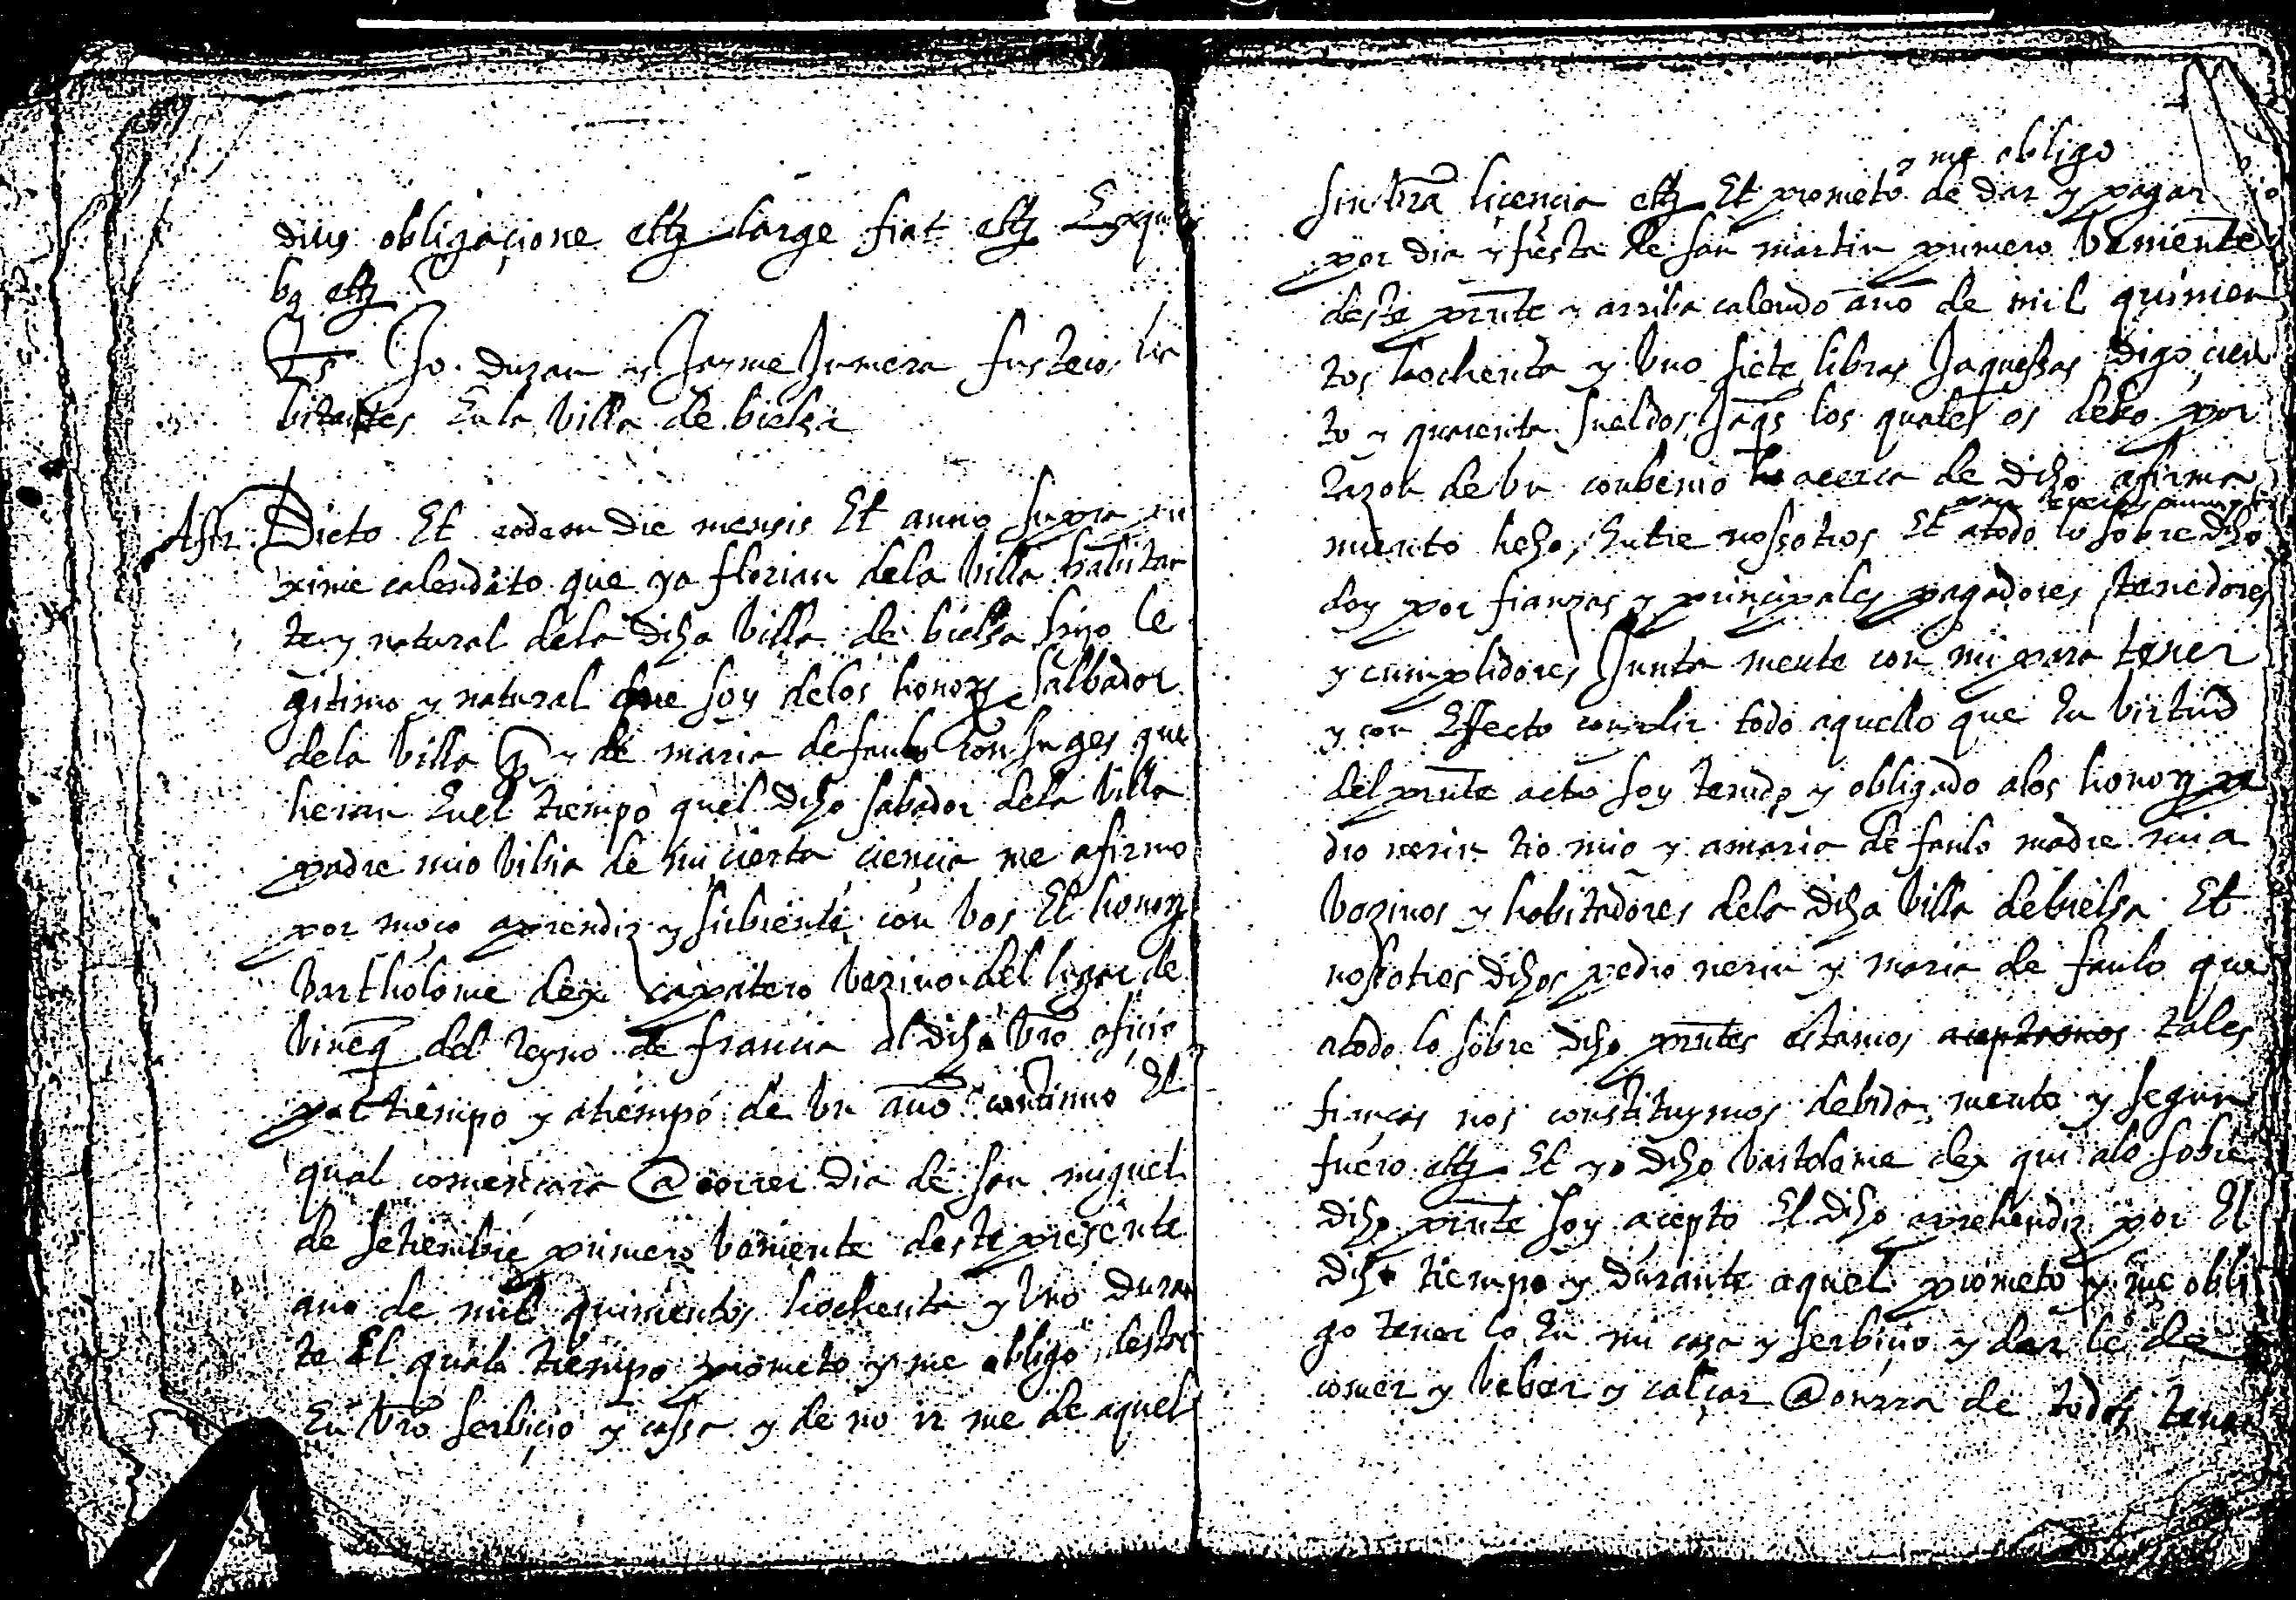 dius obligaçione ettz large fiat ettz Exqui
bq ettz
Ts Jo. duran y Jayme Jumera fusteros ha
bitantes En la billa de bielsa
Afir. Dicto Et eodem die mensis Et anno supra pro
xime calendato que yo florian dela billa habitan
te y natural dela dicha billa de bielsa hijo le
gitimo y natural que soy delos honors salbador
dela billa q y de maria de faulo conjuges que
heran En el tiempo quel dicho sabador dela billa
padre mio bibia de mi çierta ciencia me afirmo
por moço aprendiz y sirbiente con bos El honor
bartholome dex çapatero bezino del lugar de
bineq del reyno de francia al dicho bro oficio
por tiempo y atiempo de bn año continuo El
qual començara @ correr dia de san miguel
de setiembre primero beniente deste presente
ano de mil quinientos hochenta y bno duran
te El quala tiempo prometo y me obligo destar
En bro serbiçio y cassa y de no ir me de aquel
y me obligo
sin bra liçençia ettz Et prometo de dar y pagar
por dia y fiesta de san martin primero beniente
deste prnte y arriba calendo ano de mil quinien
tos hochenta y bno siete libras Jaquessas digo cien
to y quarenta sueldos Jaqs los quales os debo por
razon de bn conbenio acerca de dicho afirma
miento hecho Entre nossotros Et atodo lo sobre dicho
doy por fianzas y principales pagadores tenedores
y cumplidores Junta mente con mi para tener
y con Effecto complir todo aquello que En birtud
del prnte acto soy tenido y obligado alos honors pe
dro nerin tio mio y amaria de faulo madre mia
bezinos y habitadores dela dicha billa debielsa Et
nosotros dichos pedro nerin y maria de faulo que
atodo lo sobre dicho prntes estamos aceptamos tales
fianças nos constituymos debida mente y segun
fuero ettz Et yo dicho bartolome dex qui alo sobre
dicho prnte soy acepto El dicho aprehendiz por El
dicho tiempo y durante aquel prometo y me obli
go tener lo En mi casa y serbiçio y dar le de
comer y beber y calçar @ onrra de todos tener